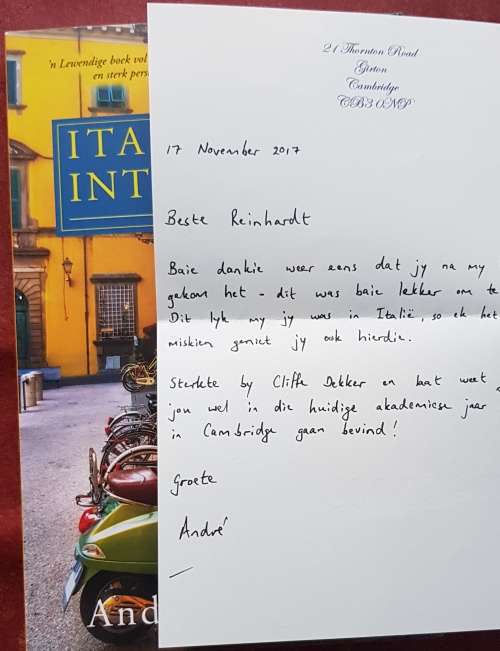 'n Lewendige boek vol
en sterk pers
ITA
INT
And
21 Thornton Road
Girton
Cambridge
CB3 0NP
17 November 2017
Beste Reinhardt
Baie dankie weer eens dat jy na my
gekom het - dit was baie lekker om te
Dit lyk my jy was in Italië, so ek het
miskien geniet jy ook hierdie.
Sterkte by Cliffe Dekker en laat weet
jou wel in die huidige akademiese jaar
in Cambridge gaan bevind!
Groete
André